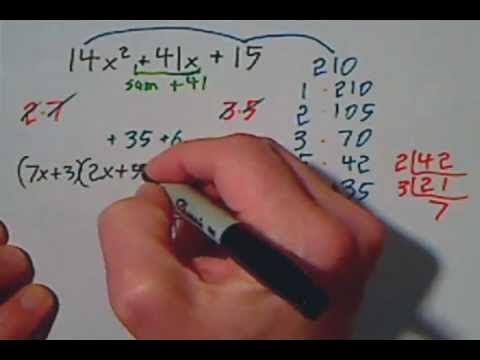 14x² + 41x + 15
sum +41
210
1 · 210
2 · 105
3 · 70
5 · 42
35
2·7
3·5
+35 +6
(7x+3)(2x+5
2 42
3 21
7